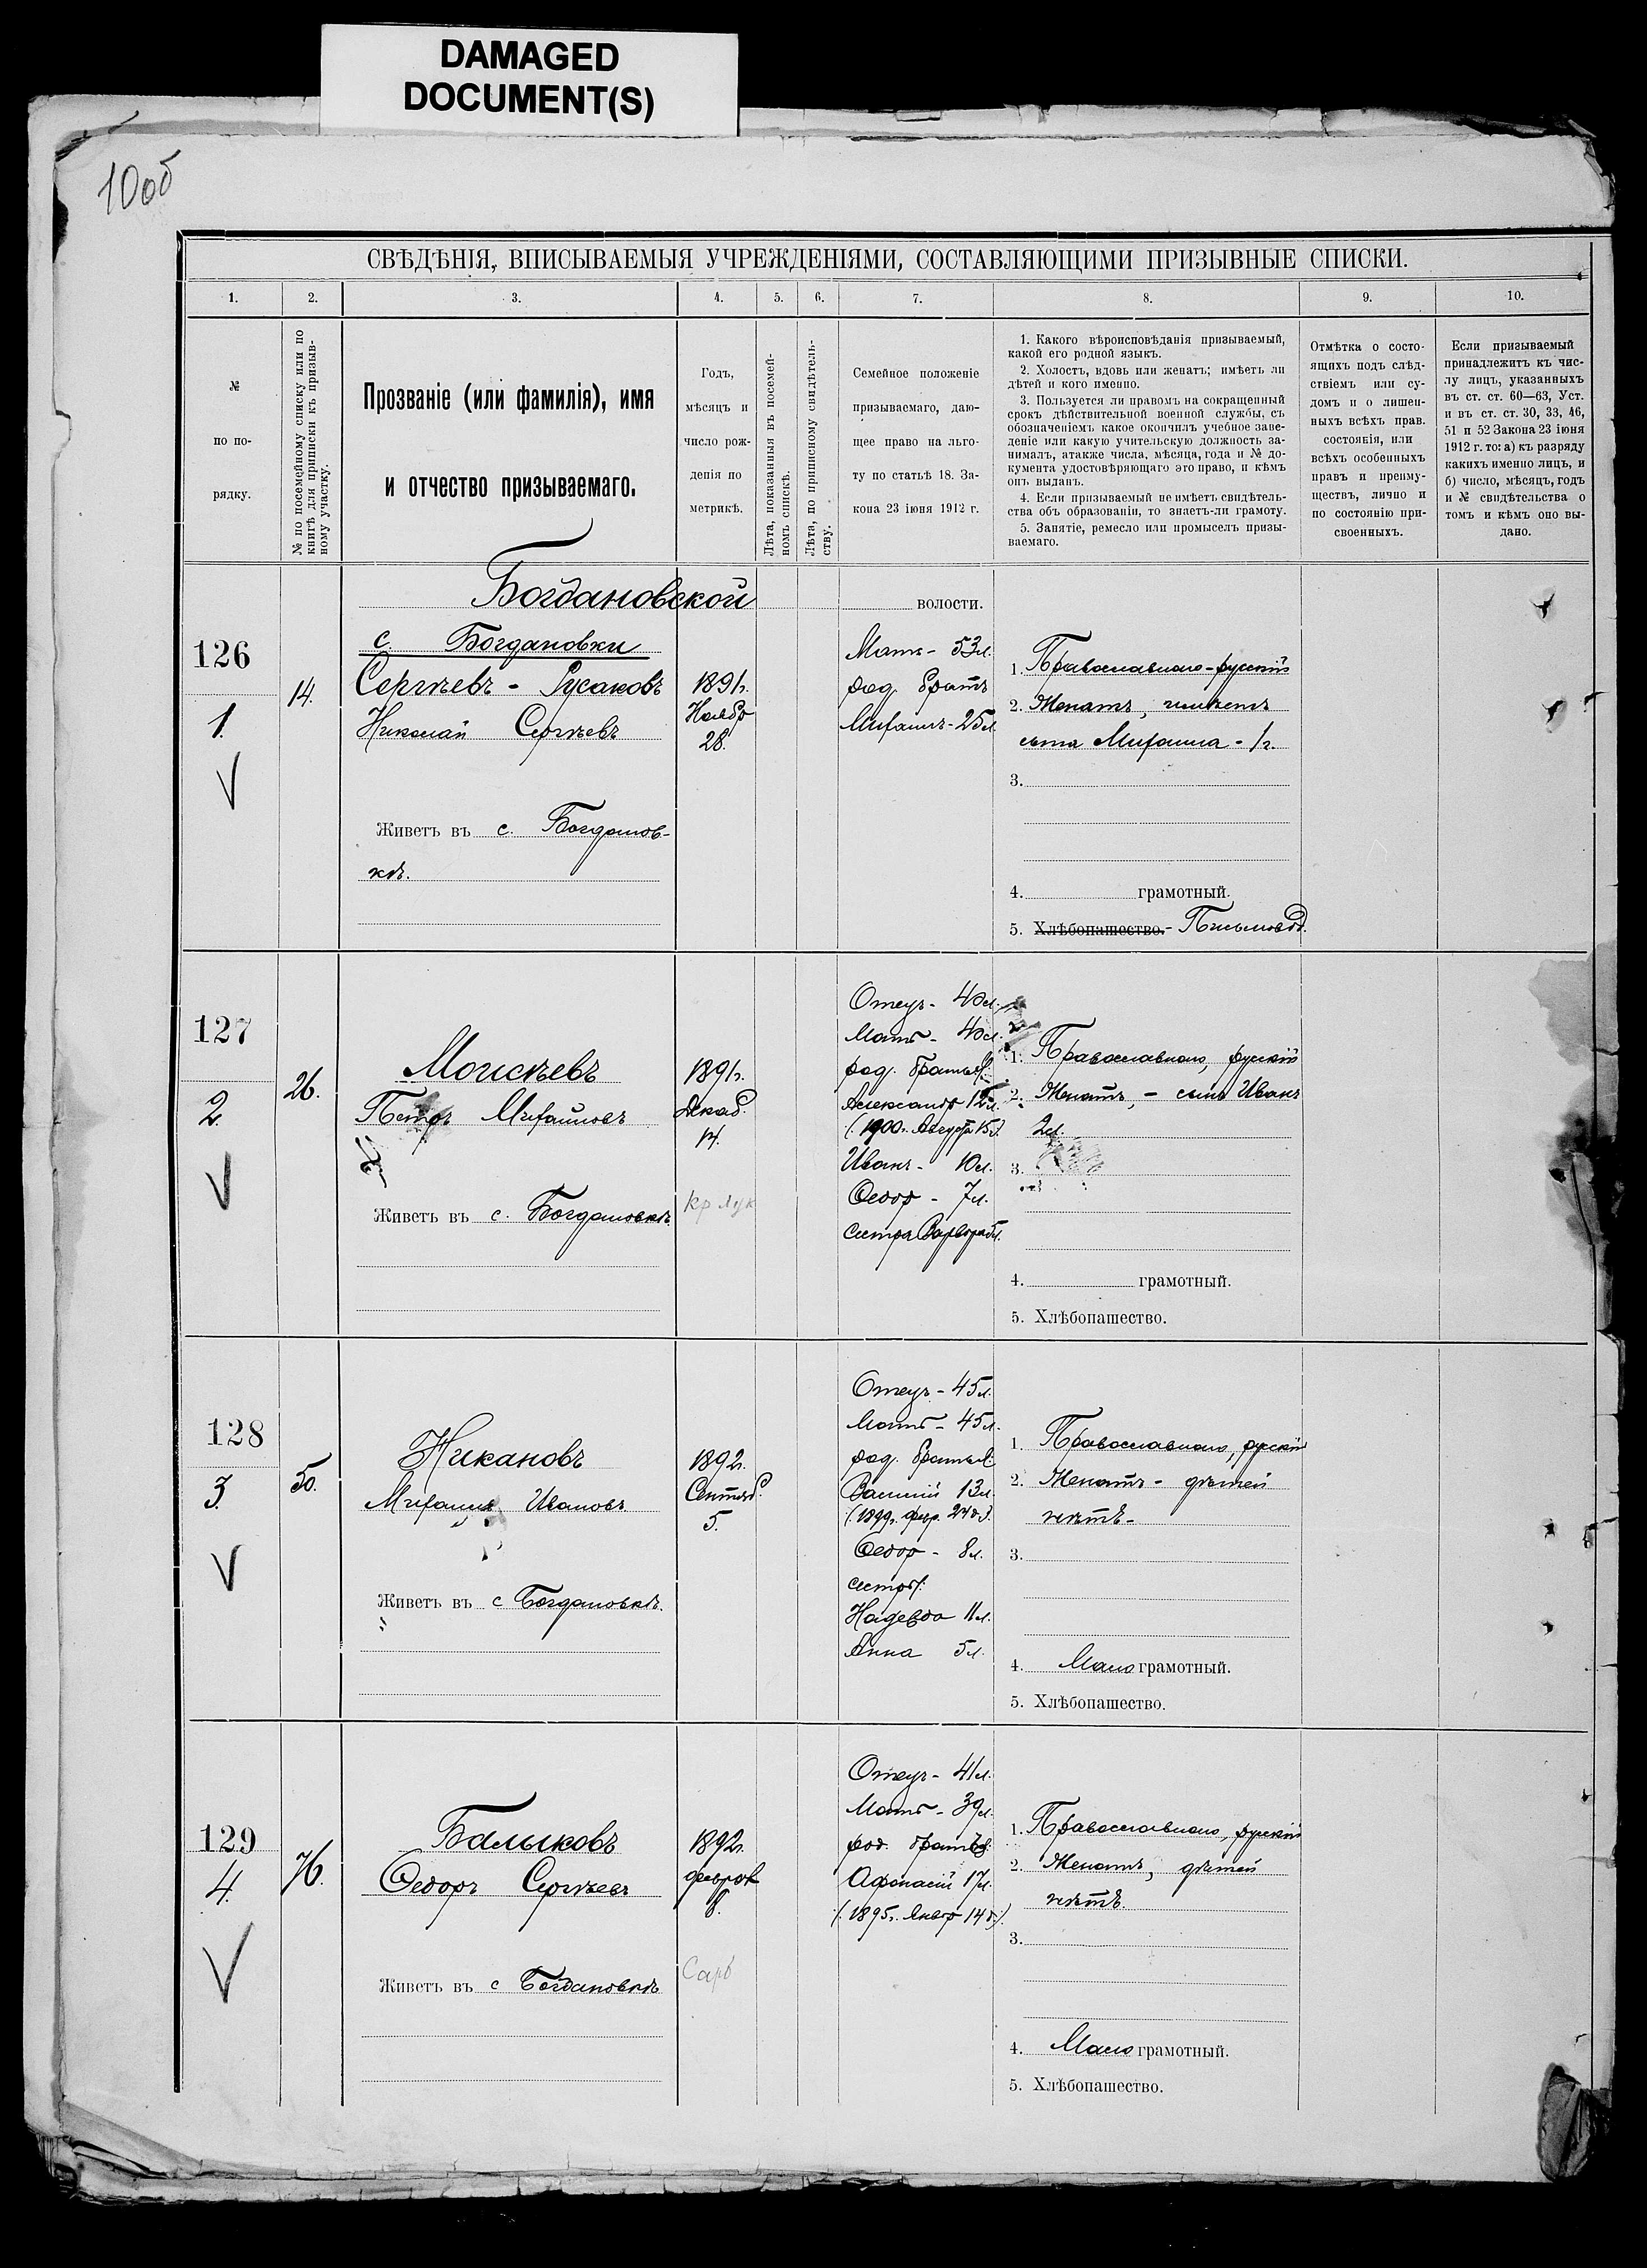 DAMAGED
DOCUMENT(S)
10об
СВѢДѢНІЯ, ВПИСЫВАЕМЫЯ УЧРЕЖДЕНІЯМИ, СОСТАВЛЯЮЩИМИ ПРИЗЫВНЫЕ СПИСКИ.
1. 2. 3. 4. 5. 6. 7. 8. 9. 10.
№
по по-
рядку.
№ по посемейному списку или по
книгѣ для приписки къ призыв-
ному участку.
Прозваніе (или фамилія), имя
и отчество призываемаго.
Годъ,
мѣсяцъ и
число рож-
денія по
метрикѣ.
Лѣта, показанныя въ посемей-
номъ спискѣ.
Лѣта, по приписному свидѣтель-
ству.
Семейное положеніе
призываемаго, даю-
щее право на льго-
ту по статьѣ 18. За-
кона 23 іюня 1912 г.
1. Какого вѣроисповѣданія призываемый,
какой его родной языкъ.
2. Холостъ, вдовъ или женатъ; имѣетъ ли
дѣтей и кого именно.
3. Пользуется ли правомъ на сокращенный
срокъ дѣйствительной военной службы, съ
обозначеніемъ какое окончилъ учебное заве-
деніе или какую учительскую должность за-
нималъ, атакже числа, мѣсяца, года и № до-
кумента удостовѣряющаго это право, и кѣмъ
онъ выданъ.
4. Если призываемый не имѣетъ свидѣтель-
ства объ образованіи, то знаетъ-ли грамоту.
5. Занятіе, ремесло или промыселъ призы-
ваемаго.
Отмѣтка о состо-
ящихъ подъ слѣд-
ствіемъ или су-
домъ и о лишен-
ныхъ всѣхъ прав.
состоянія, или
всѣхъ особенныхъ
правъ и преиму-
ществъ, лично и
по состоянію при-
своенныхъ.
Если призываемый
принадлежитъ къ чис-
лу лицъ, указанныхъ
въ ст. ст. 60—63, Уст.
и въ ст. ст. 30, 33, 46,
51 и 52 Закона 23 іюня
1912 г. то: а) къ разряду
какихъ именно лицъ, и
б) число, мѣсяцъ, годъ
и № свидѣтельства о
томъ и кѣмъ оно вы-
дано.
Богдановской волости.
126
1.
14.
с. Богдановки
Сергѣевъ - Русаковъ
Николай Сергѣевъ
Живетъ въ с. Богданов-
кѣ.
1891г.
Ноябр
28.
Мать - 53л.
род. братъ
Михаилъ - 25л.
1. Православнаго - русскій
2. Женатъ, имѣетъ
сына Михаила - 1г.
3.
4. грамотный.
5. Хлѣбопашество. - Письмовод.
127
2.
26.
Моисѣевъ
Петръ Михайловъ
Живетъ въ с. Богдановкѣ.
1891г.
Декаб.
14.
Отецъ - 40л.
Мать - 40л.
род. братья:
Александр 12л.
(1900г. Августа 15д.)
Иванъ - 10л.
Ѳедор - 7л.
сестра Варвара 5л.
1. Православнаго, русскій
2. Женатъ, - сынъ Иванъ
2л.
3.
4. грамотный.
5. Хлѣбопашество.
128
3.
50.
Никановъ
Михаилъ Ивановъ
Живетъ въ с Богдановкѣ.
1892г.
Сентяб.
5.
Отецъ - 45л.
Мать - 45л.
род. братья:
Василій 13л.
(1899г. февр. 24д.)
Ѳедор - 8л.
сестры:
Надежда 11л.
Анна 5л.
1. Православнаго, русскій
2. Женатъ - дѣтей
нѣтъ -
3.
4. Мало грамотный.
5. Хлѣбопашество.
129
4.
76.
Балыковъ
Ѳедоръ Сергѣевъ
Живетъ въ с Богдановкѣ
1892г.
феврал
8.
Сарв
Отецъ - 41л.
Мать - 39л.
род. братъ:
Афонасій 17л.
(1895г. Январ 14д.)
1. Православнаго, русскій
2. Женатъ, дѣтей
нѣтъ.
3.
4. Мало грамотный.
5. Хлѣбопашество.